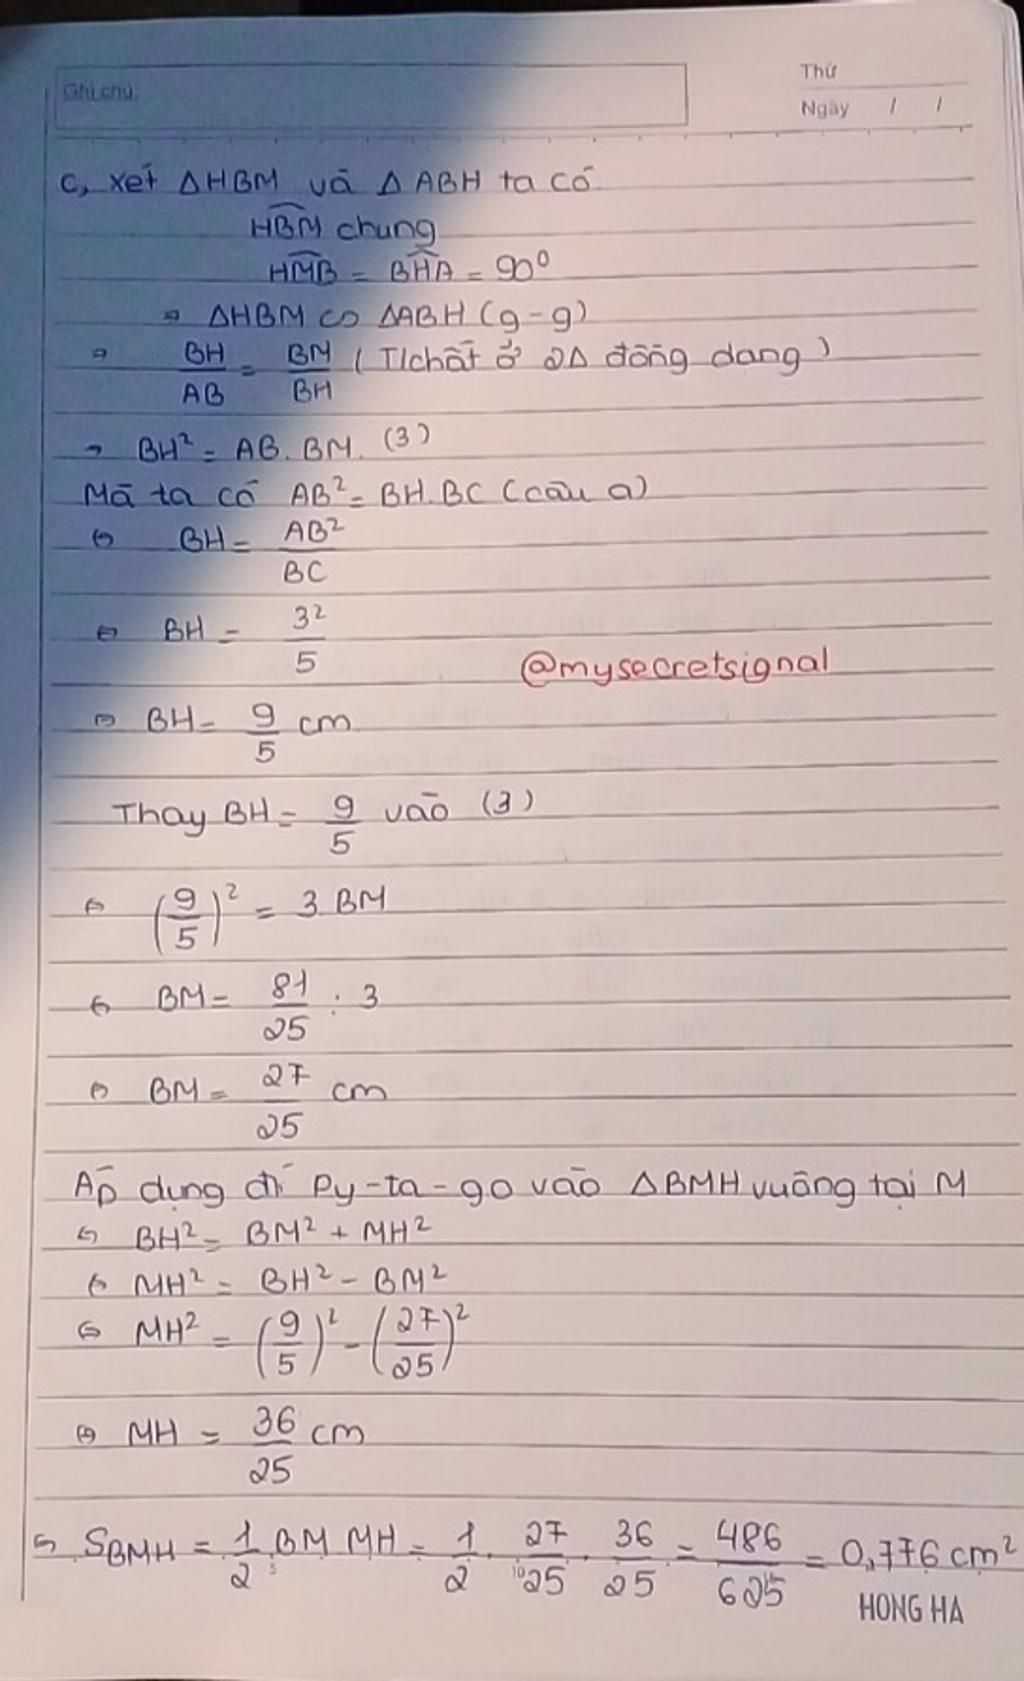 Ghi chú:
Thứ
Ngày / /
c, xét ΔHBM và ΔABH ta có
HBM̂ chung
HMB̂ = BHÂ = 90⁰
⇒ ΔHBM ∽ ΔABH (g-g)
⇒ BH/AB = BM/BH (T/chất ở 2Δ đồng dạng)
⇒ BH² = AB.BM. (3)
Mà ta có AB² = BH.BC (câu a)
⇔ BH = AB²/BC
⇔ BH = 3²/5
@mysecretsignal
⇔ BH = 9/5 cm
Thay BH = 9/5 vào (3)
⇔ (9/5)² = 3 BM
⇔ BM = 81/25 : 3
⇔ BM = 27/25 cm
Áp dụng đ/í Py-ta-go vào ΔBMH vuông tại M
⇔ BH² = BM² + MH²
⇔ MH² = BH² - BM²
⇔ MH² = (9/5)² - (27/25)²
⇔ MH = 36/25 cm
⇔ S_BMH = 1/2 BM MH = 1/2 . 27/25 . 36/25 = 486/625 = 0,776 cm²
HONG HA